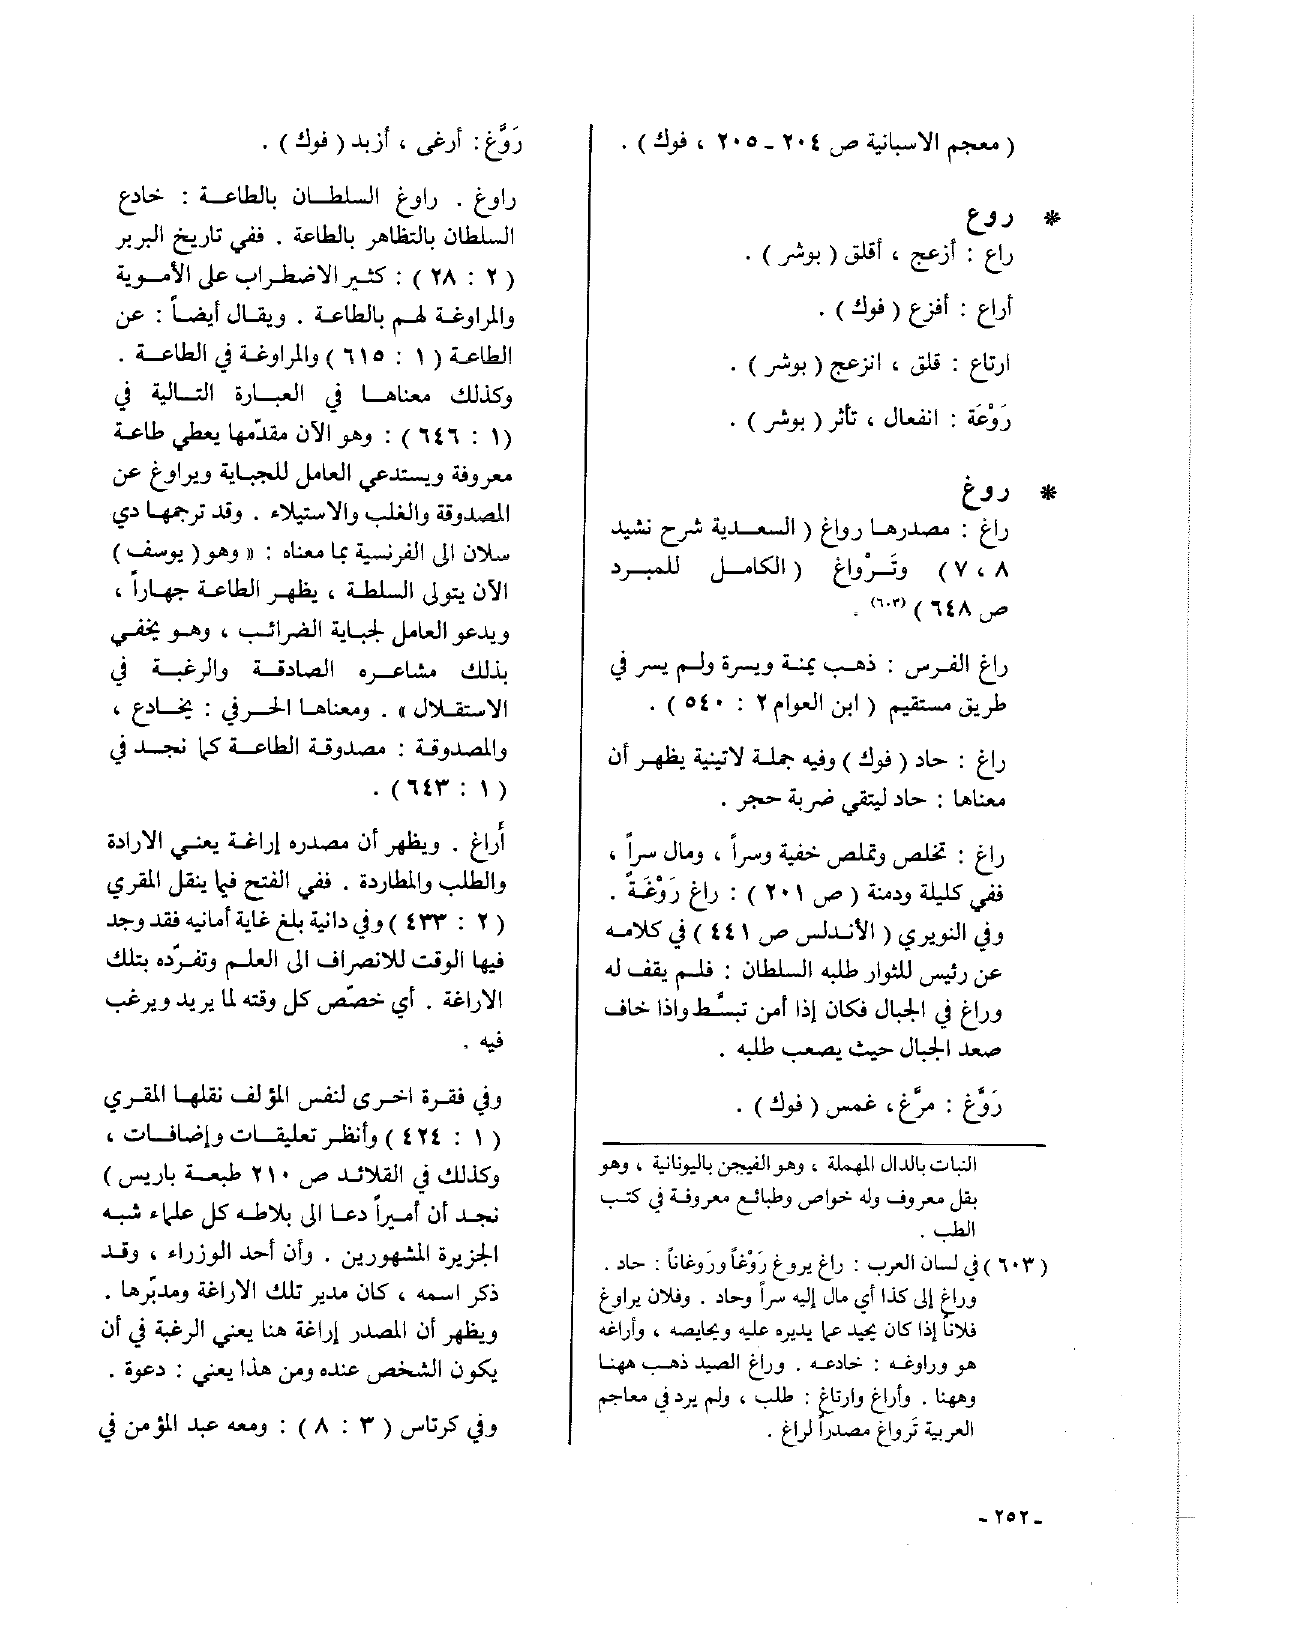 ( معجم الاسبانية ص ٢٠٤ ـ ٢٠٥ ، فوك ) .
* روع
راع : أزعج ، أقلق ( بوشر ) .
أراع : أفزع ( فوك ) .
ارتاع : قلق ، انزعج ( بوشر ) .
رَوْعَة : انفعال ، تأثر ( بوشر ) .
* روغ
راغ : مصدرها رواغ ( السعدية شرح نشيد
٧ ، ٨ ) وتَرْواغ ( الكامل للمبرد
ص ٦٤٨ ) (٦٠٣) .
راغ الفرس : ذهب يمنة ويسرة ولم يسر في
طريق مستقيم ( ابن العوام ٢ : ٥٤٠ ) .
راغ : حاد ( فوك ) وفيه جملة لاتينية يظهر أن
معناها : حاد ليتقي ضربة حجر .
راغ : تخلص وتملص خفية وسراً ، ومال سراً ،
ففي كليلة ودمنة ( ص ٢٠١ ) : راغ رَوْغَةً .
وفي النويري ( الأندلس ص ٤٤١ ) في كلامه
عن رئيس للثوار طلبه السلطان : فلم يقف له
وراغ في الجبال فكان إذا أمن تبسَّط واذا خاف
صعد الجبال حيث يصعب طلبه .
رَوَّغ : مرَّغ، غمس ( فوك ) .
النبات بالدال المهملة ، وهو الفيجن باليونانية ، وهو
بقل معروف وله خواص وطبائع معروفة في كتب
الطب .
( ٦٠٣ ) في لسان العرب : راغ يروغ رَوْغاً ورَوغاناً : حاد .
وراغ إلى كذا أي مال إليه سراً وحاد . وفلان يراوغ
فلاناً إذا كان يحيد عما يديره عليه ويحايصه ، وأراغه
هو وراوغه : خادعه . وراغ الصيد ذهب ههنا
وههنا . وأراغ وارتاغ : طلب ، ولم يرد في معاجم
العربية تَرواغ مصدراً لراغ .
رَوَّغ : أرغى ، أزبد ( فوك ) .
راوغ . راوغ السلطان بالطاعة : خادع
السلطان بالتظاهر بالطاعة . ففي تاريخ البربر
( ٢ : ٢٨ ) : كثير الاضطراب على الأموية
والمراوغة لهم بالطاعة . ويقال أيضاً : عن
الطاعة ( ١ : ٦١٥ ) والمراوغة في الطاعة .
وكذلك معناها في العبارة التالية في
( ١ : ٦٤٦ ) : وهو الآن مقدّمها يعطي طاعة
معروفة ويستدعي العامل للجباية ويراوغ عن
المصدوقة والغلب والاستيلاء . وقد ترجمها دي
سلان الى الفرنسية بما معناه : « وهو ( يوسف )
الآن يتولى السلطة ، يظهر الطاعة جهاراً ،
ويدعو العامل لجباية الضرائب ، وهو يخفي
بذلك مشاعره الصادقة والرغبة في
الاستقلال » . ومعناها الحرفي : يخادع ،
والمصدوقة : مصدوقة الطاعة كما نجد في
( ١ : ٦٤٣ ) .
أراغ . ويظهر أن مصدره إراغة يعني الارادة
والطلب والمطاردة . ففي الفتح فيما ينقل المقري
( ٢ : ٤٣٣ ) وفي دانية بلغ غاية أمانيه فقد وجد
فيها الوقت للانصراف الى العلم وتفرّده بتلك
الاراغة . أي خصّص كل وقته لما يريد ويرغب
فيه .
وفي فقرة اخرى لنفس المؤلف نقلها المقري
( ١ : ٤٢٤ ) وأنظر تعليقات وإضافات ،
وكذلك في القلائد ص ٢١٠ طبعة باريس )
نجد أن أميراً دعا الى بلاطه كل علماء شبه
الجزيرة المشهورين . وأن أحد الوزراء ، وقد
ذكر اسمه ، كان مدير تلك الاراغة ومدبّرها .
ويظهر أن المصدر إراغة هنا يعني الرغبة في أن
يكون الشخص عنده ومن هذا يعني : دعوة .
وفي كرتاس ( ٣ : ٨ ) : ومعه عبد المؤمن في
ـ ٢٥٢ ـ